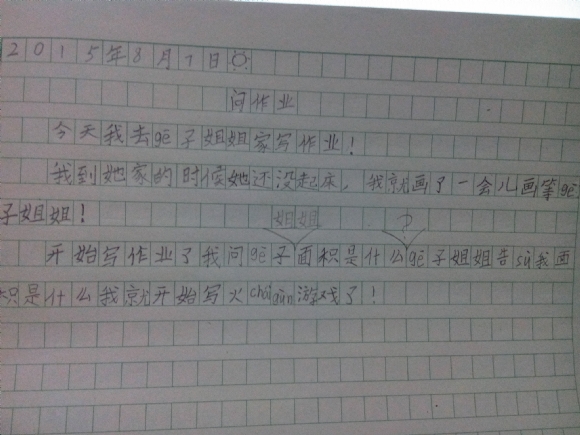 2015年8月7日
问作业
今天我去gē子姐姐家写作业!
我到她家的时候她还没起床,我就画了一会儿画等gē
子姐姐!
姐姐 ?
开始写作业了我问gē子面积是什么gē子姐姐告sù我面
积是什么我就开始写火chái gùn游戏了!